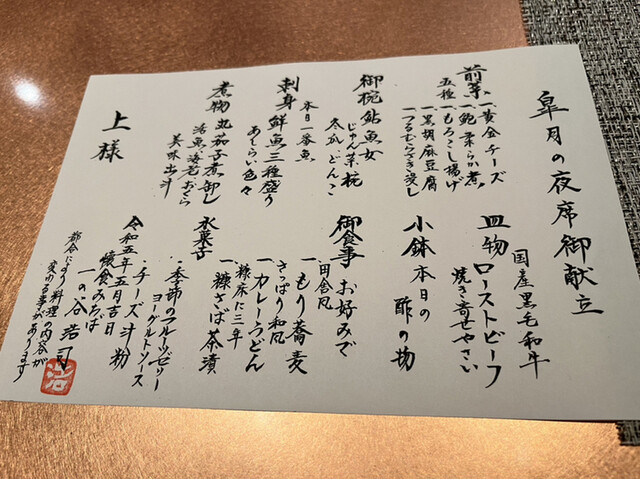 皐月の夜席御献立
前菜
五種
一、黄金チーズ
一、鮑柔らか煮
一、もろこし揚げ
一、黒胡麻豆腐
一、つるむらさき浸し
御椀 鮎魚女
じゅん菜 梔
冬瓜 どんこ
刺身 鮮魚三種盛り
本日一番魚
あしらい色々
煮物 丸茄子煮卸し
活魚 海老 おくら
美味出汁
上様
皿物 ローストビーフ
国産黒毛和牛
焼き寄せやさい
小鉢 本日の
酢の物
御食事 お好みで
田舎風
一、もり蕎麦
さっぱり和風
一、カレーうどん
糠床に三年
一、糠さば茶漬
水菓子
・季節のフルーツゼリー
ヨーグルトソース
・チーズ汁粉
令和五年五月吉日
儀食みちば
一の谷浩司
都合により料理の内容が
変わる事があります